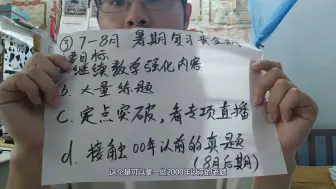 ③ 7-8月 暑期复习黄金期
目标
继续数学强化内容
b. 大量练题
C. 定点突破,看专项直播
d. 接触00年以前的真题
(8月后期)
这个是可以拿一些2000年以前的老题